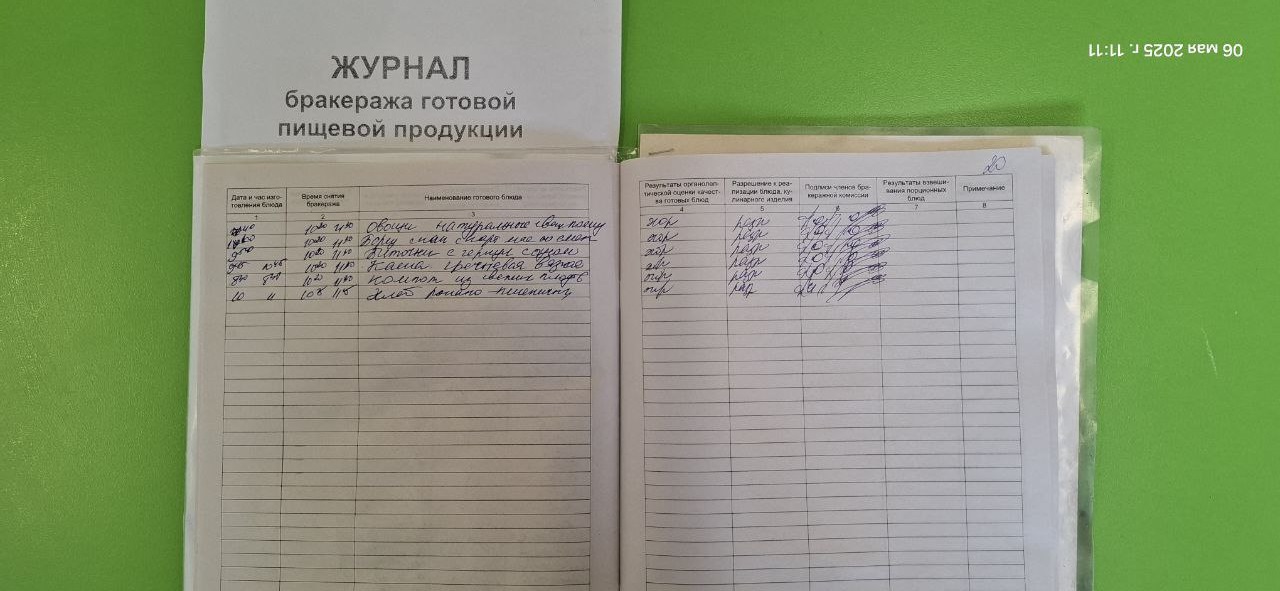 ЖУРНАЛ
бракеража готовой
пищевой продукции
06 мая 2025 г. 11:11
20
Дата и час изго-
товления блюда
Время снятия
бракеража
Наименование готового блюда
1
2
3
овощи натуральные
10²⁰ 11⁰⁰ Борщ
10²⁰ 11⁰⁰ Биточки с
10²⁰ 11⁰⁰ Каша гречневая вязкая
10²⁰ 11⁰⁰ Компот из свежих плодов
10 Хлеб ржано-пшеничн
Результаты органолеп-
тической оценки качест-
ва готовых блюд
Разрешение к реа-
лизации блюда, ку-
линарного изделия
Подписи членов бра-
керажной комиссии
Результаты взвеши-
вания порционных
блюд
Примечание
4
5
6
7
8
хор разр
хор разр
хор разр
разр
разр